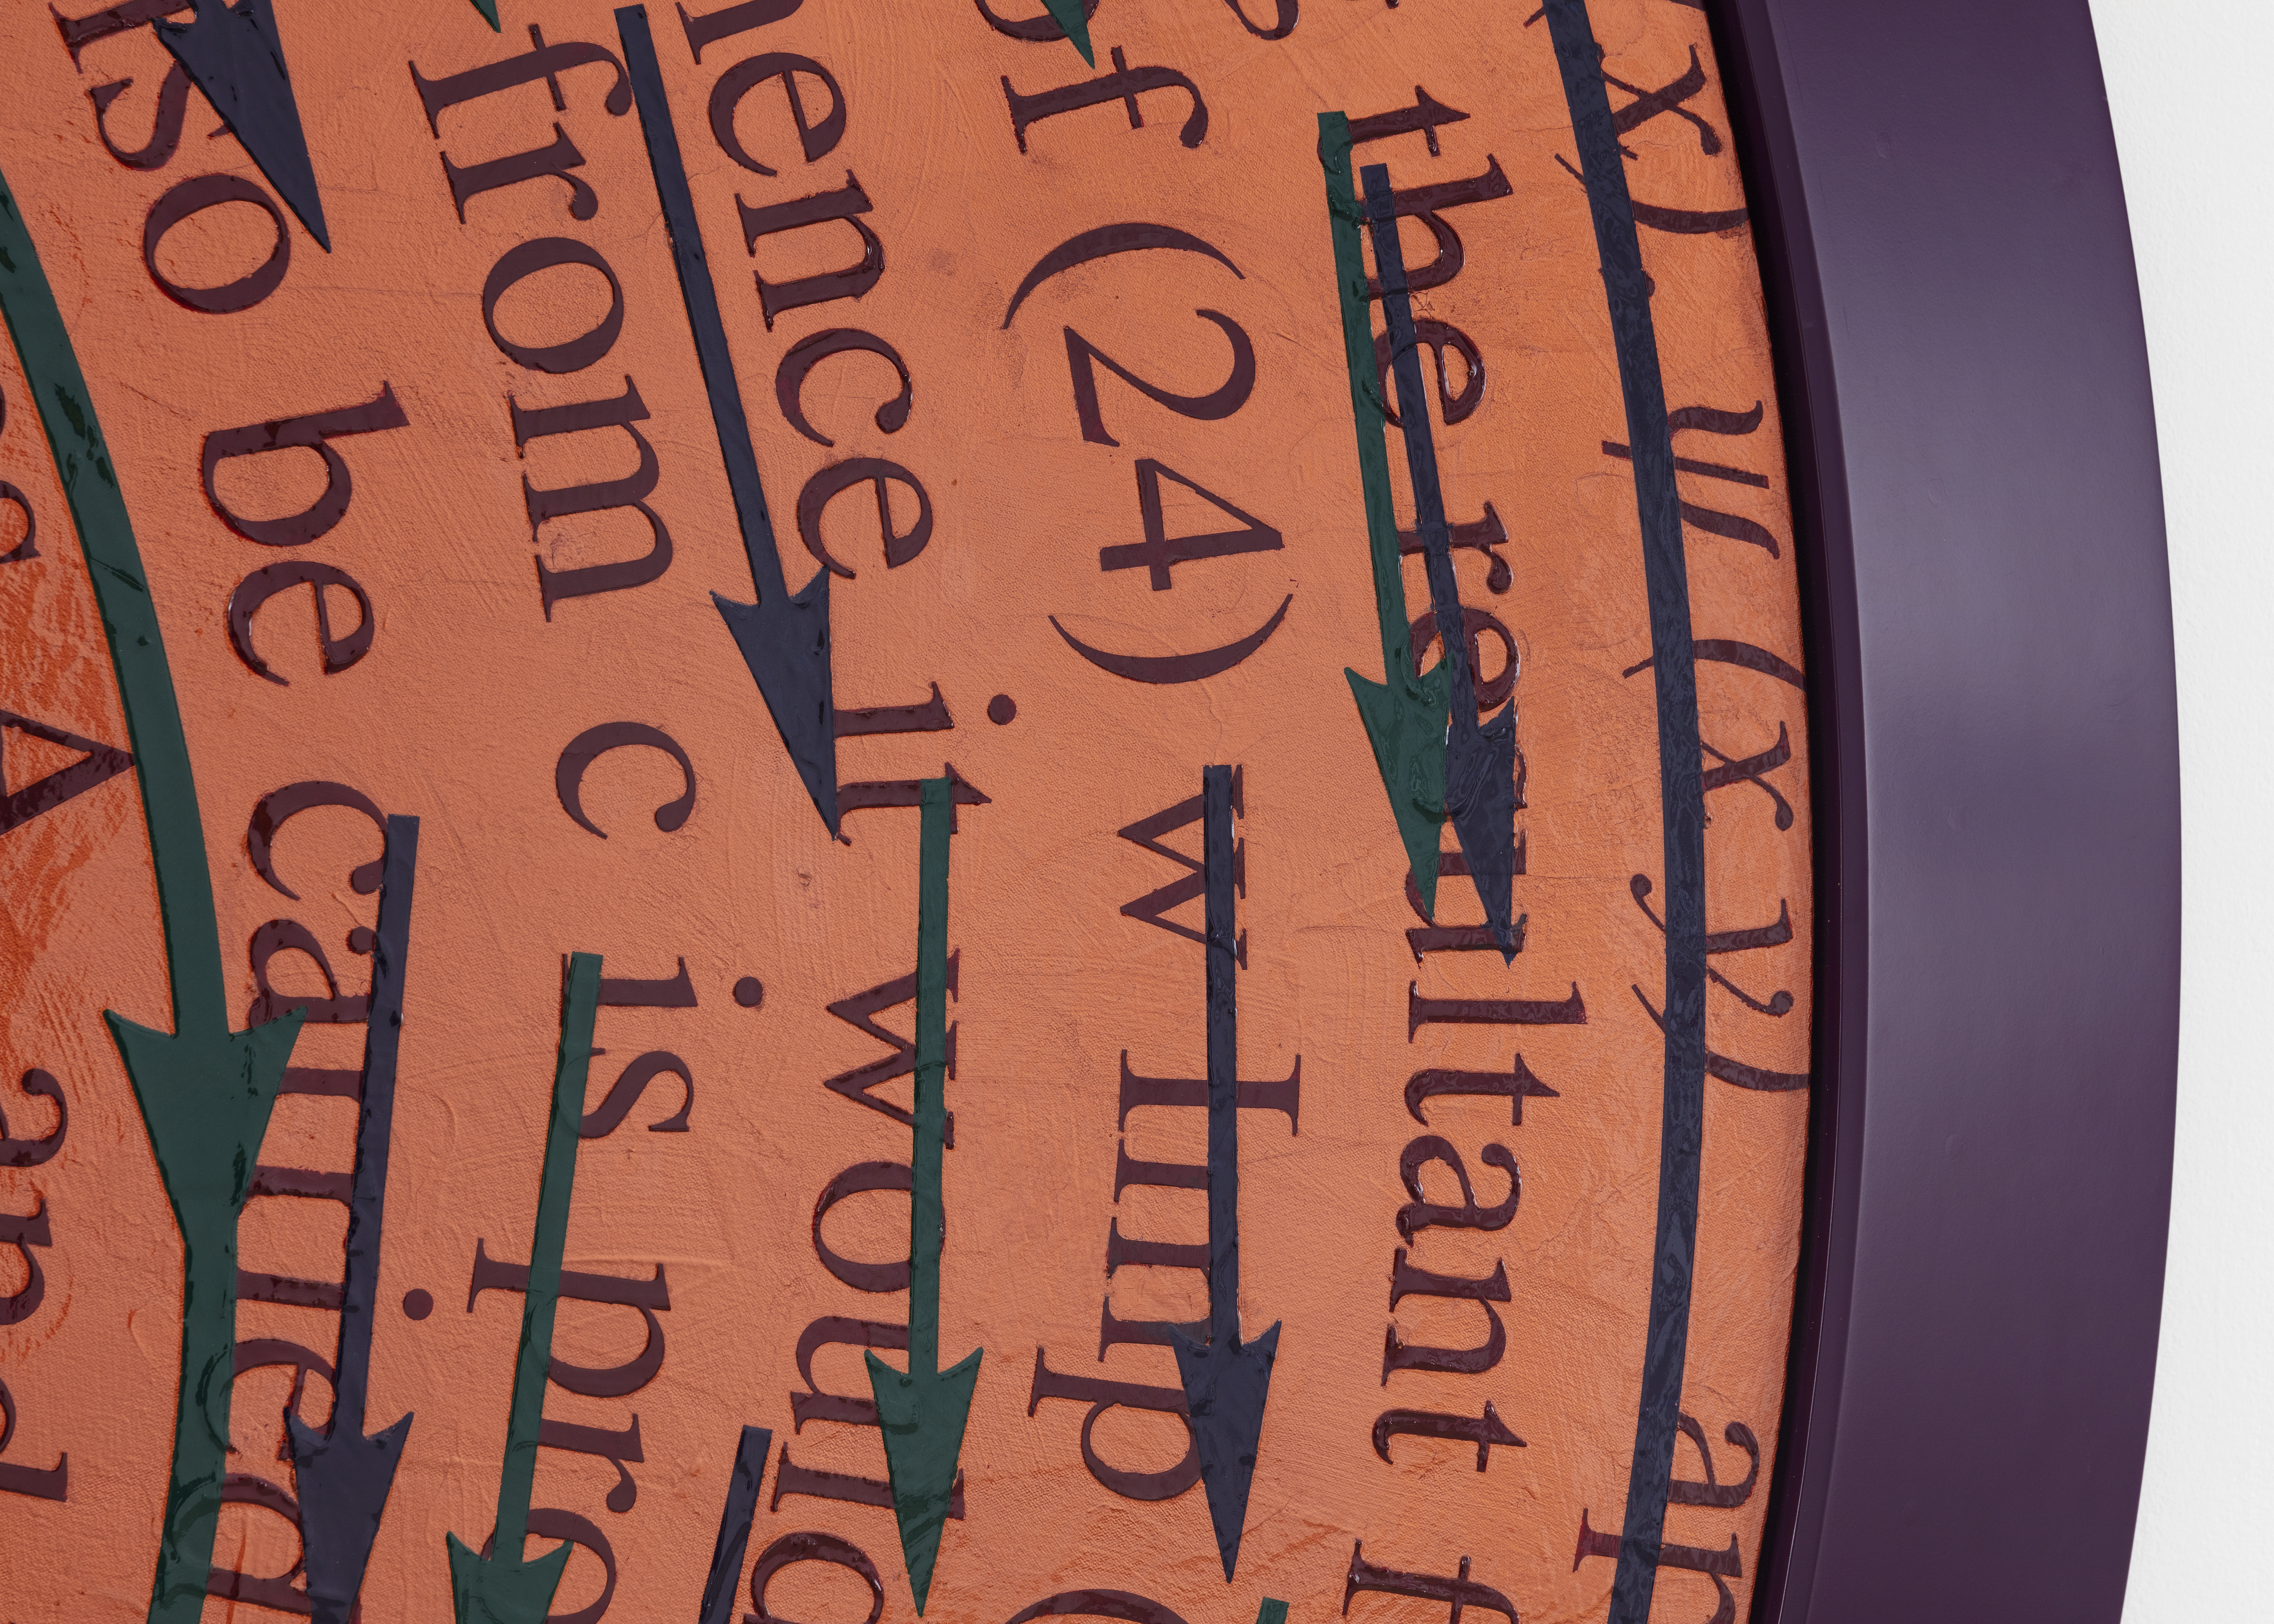 x) ψ (x y) ar
the resultant f
of (24) w Imp (
ence it would
from c is pre
so be carried
A and